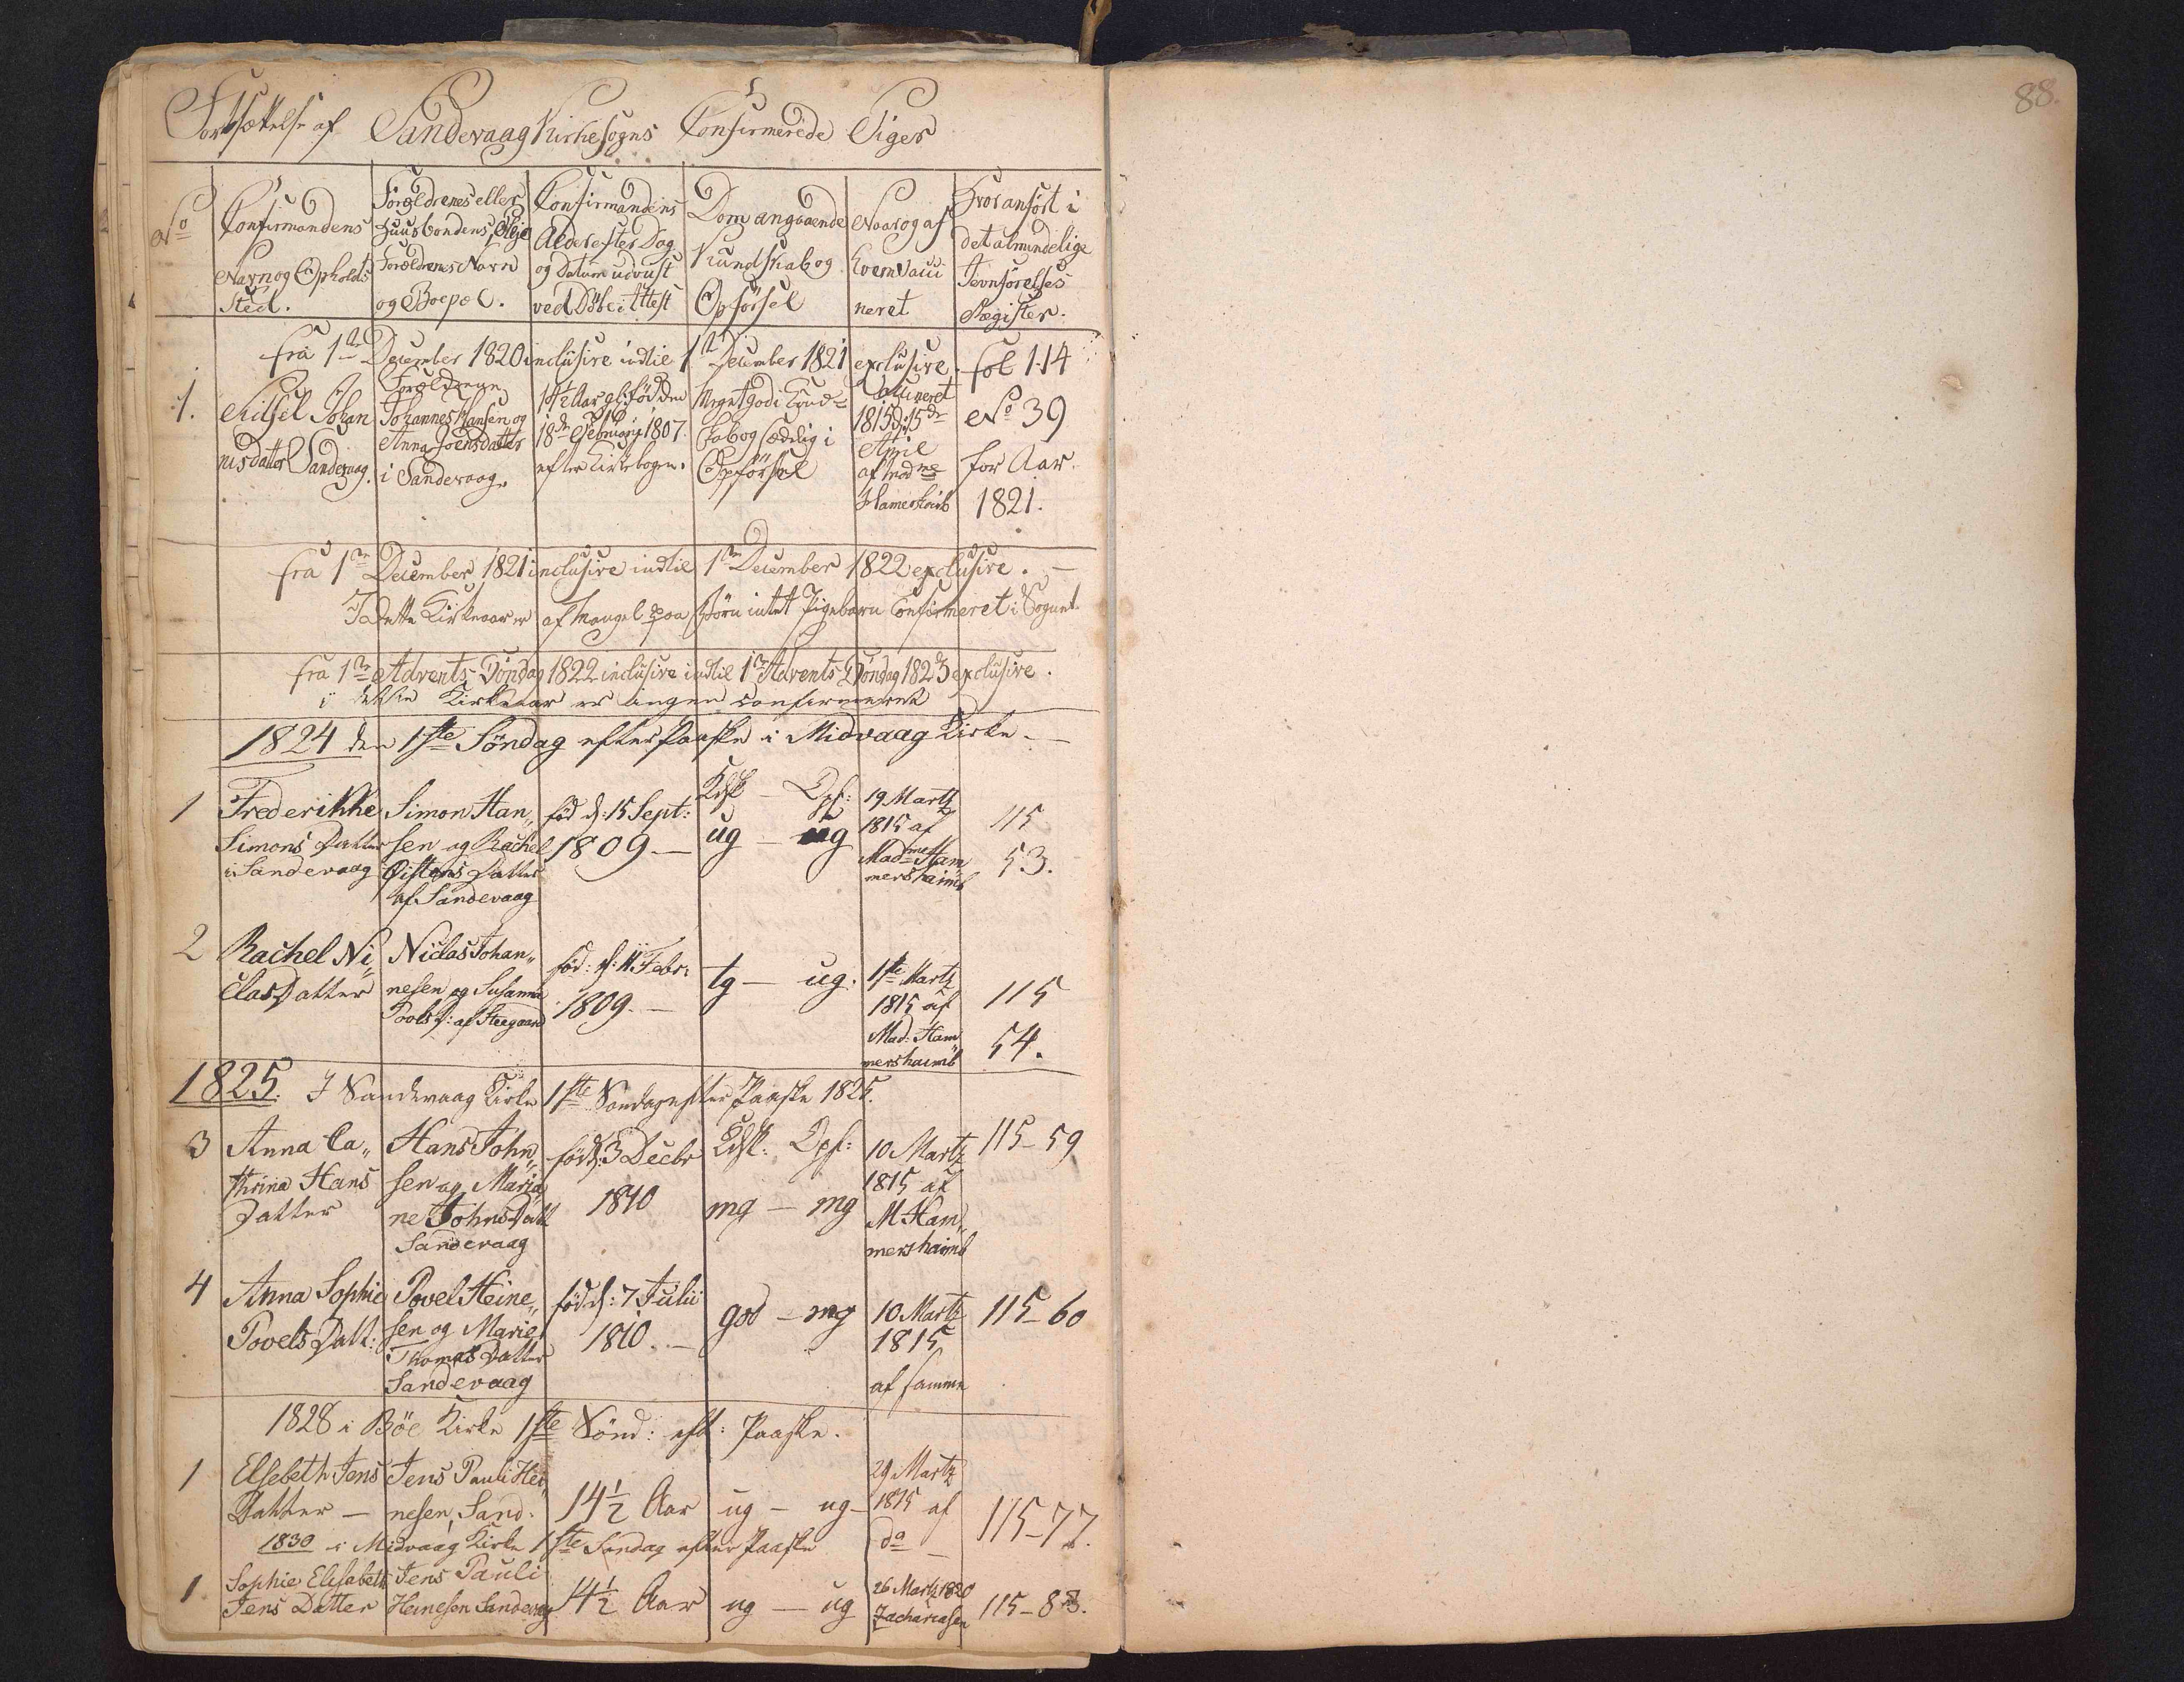 88.
Fortsættelse af Sandevaag Kirkesogns Confirmerede Piger
No
Confirmandens
Navn og Opholds
Sted.
Forældrenes eller
Huusbondens, Pleje
Forældrenes Navn
og Boepæl.
Confirmandens
Alder efter Dag
og Datum udviist
ved Döbe-Attest
Dom angaaende
Kundskab og
Opförsel
Naar og af
hvem Vacci
neret
Hvor anfört i
det almindelige
Jevnförelses
Register.
fra 1te December 1820 inclusive indtil 1te December 1821 exclusive.
1.
Sitsel Johan
nisdatter Sandevaag.
Forældrene
Johannes Hansen og
Anna Joensdatter
i Sandevaag.
14½ Aar gl: föd den
18de Februarij 1807.
efter Kirkebogen.
Meget god i Kund-
skab og sædelig i
Opförsel
Vaccineret
1815 d: 15de
April
af Madme
Hamershaimb
fol 114
No 39
for Aar
1821.
fra 1te December 1821 inclusive indtil 1te December 1822 exclusive. —
I dette Kirkeaar er af Mangel paa Börn intet Pigebarn Confirmeret i Sognet.
fra 1te Advents-Söndag 1822 inclusive indtil 1te Advents Söndag 1823 exclusive.
i dette Kirkeaar er ingen confirmeret
1824 den 1ste Söndag efter Paaske i Midvaag Kirke. —
1
Frederikke
Simons Datter
i Sandevaag
Simon Han„
sen og Rachel
Datter
af Sandevaag
föd d: 15 Sept:
1809 —
Kdsk — Opf:
ug — ug
19 Martz
1815 af
Madme Ham„
mershaimb
115
53.
2
Rachel Ni„
clasDatter
Niclas Johan„
nesen og Susanna
Povls D: af Steegaard
föd: d: 11 Febr:
1809. —
tg — ug.
1ste Martz
1815 af
Mad: Ham„
mershaimb
115
54.
1825. I Sandevaag Kirke 1ste Söndag efter Paaske 1825.
3
Anna Ca„
thrina Hans
Datter
Hans John„
sen og Maria„
ne Johns Datt
Sandevaag
föd d: 3 Decbr
1810
Kdsk: Opf:
mg — mg
10 Martz
1815 af
M Ham„
mershaimb
115–59
4
Anna Sophie
Povels Datt:
Povel Heine„
sen og Marie
Thomas Datter
Sandevaag
föd d: 7 Julii
1810. —
god — mg
10 Martz
1815
af samme
115–60
1828 i Böe Kirke 1ste Sönd: eft: Paaske.
1
Elsebeth Jens
Datter —
Jens Pauli Hei„
nesen, Sand.
14½ Aar
ug — ug —
29 Martz
1815 af
do —
115–77.
1830 i Midvaag Kirke 1ste Söndag efter Paaske
1
Sophie Elisabeth
Jens Datter
Jens Pauli
Heinesen Sandevaag
14½ Aar
ug — ug
26 Martz 1820
Zachariasen
115–83.